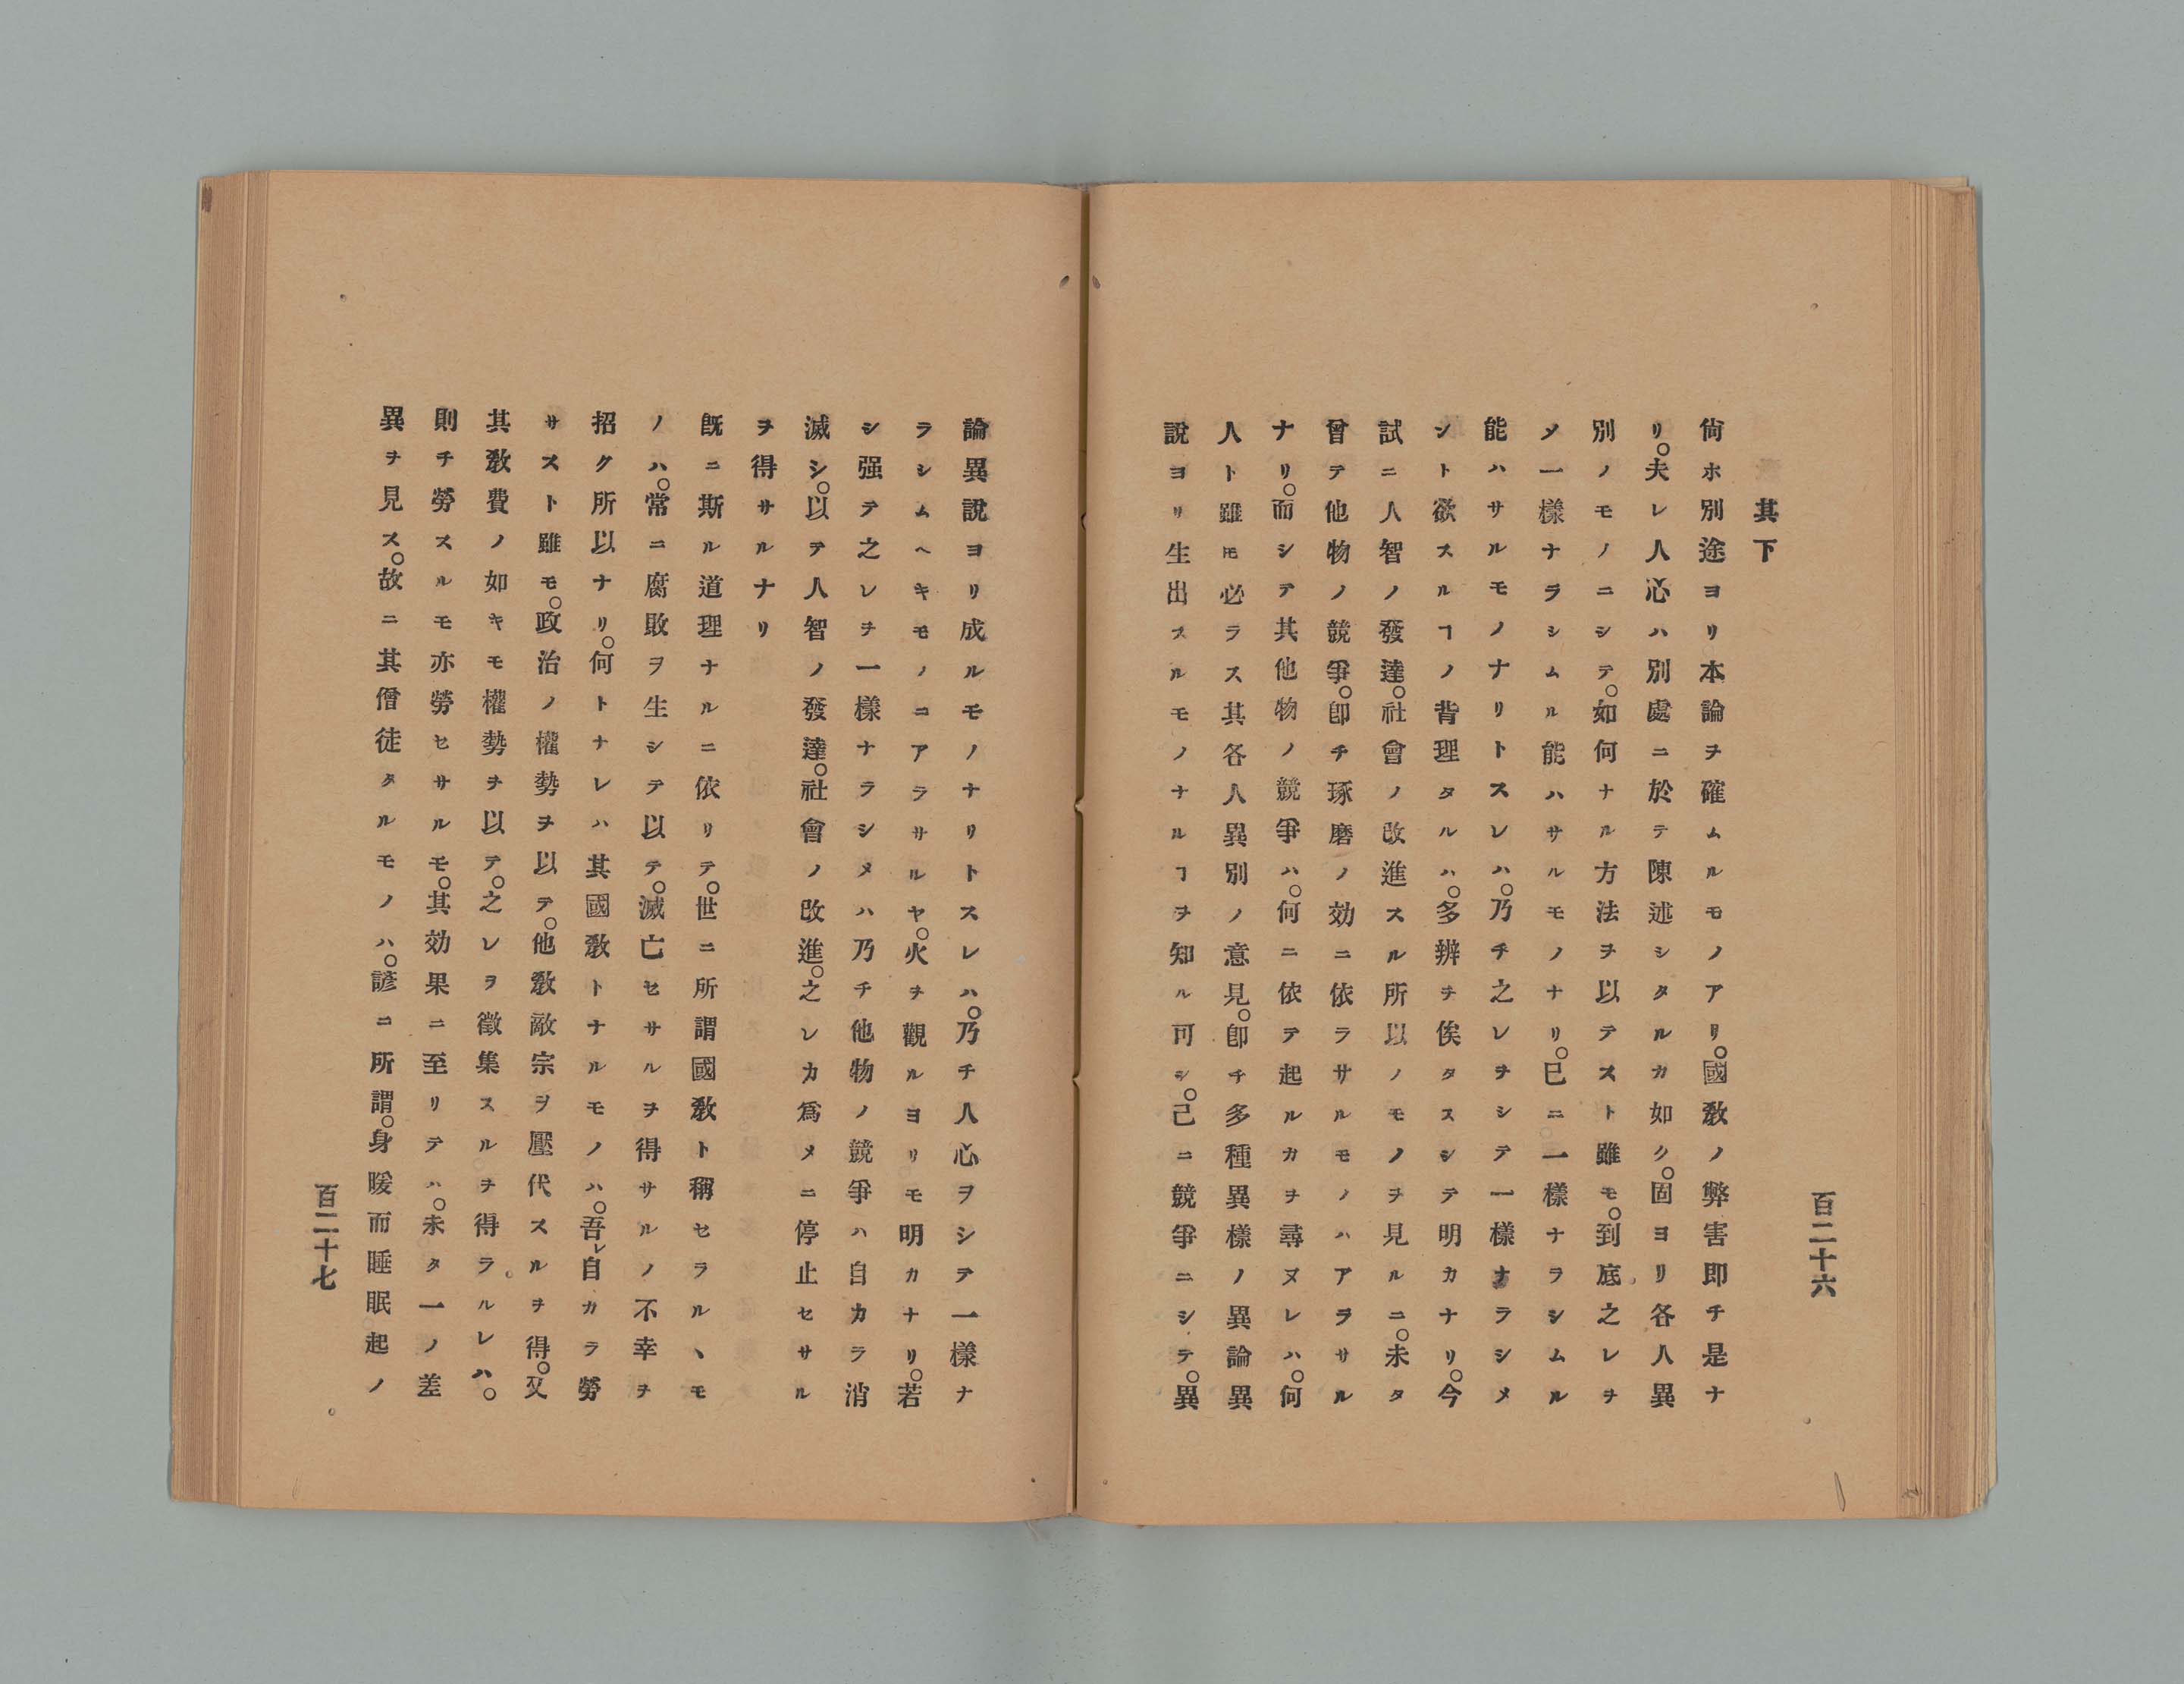 其下
尙ホ別途ヨリ本論ヲ確ムルモノアリ。國敎ノ弊害即チ是ナ
リ。夫レ人心ハ別處ニ於テ陳述シタルカ如ク。固ヨリ各人異
別ノモノニシテ。如何ナル方法ヲ以テスト雖モ。到底之レヲ
メ一樣ナラシムル能ハサルモノナリ。已ニ一樣ナラシムル
能ハサルモノナリトスレハ。乃チ之レヲシテ一樣ナラシメ
ント欲スルヿノ背理タルハ。多辨ヲ俟タスシテ明カナリ。今
試ニ人智ノ發達。社會ノ改進スル所以ノモノヲ見ルニ。未タ
曾テ他物ノ競爭。卽チ琢磨ノ効ニ依ラサルモノハアラサル
ナリ。而シテ其他物ノ競爭ハ。何ニ依テ起ルカヲ尋ヌレハ。何
人ト雖モ必ラス其各人異別ノ意見。卽チ多種異樣ノ異論異
說ヨリ生出スルモノナルヿヲ知ル可シ。己ニ競爭ニシテ。異
百二十六
論異說ヨリ成ルモノナリトスレハ。乃チ人心ヲシテ一樣ナ
ラシムヘキモノニアラサルヤ。火ヲ觀ルヨリモ明カナリ。若
シ强テ之レヲ一樣ナラシメハ乃チ他物ノ競爭ハ自カラ消
滅シ。以テ人智ノ發達。社會ノ改進。之レカ爲メニ停止セサル
ヲ得サルナリ
旣ニ斯ル道理ナルニ依リテ。世ニ所謂國敎ト稱セラルヽモ
ノハ。常ニ腐敗ヲ生シテ以テ。滅亡セサルヲ得サルノ不幸ヲ
招ク所以ナリ。何トナレハ其國敎トナルモノハ。吾レ自カラ勞
サスト雖モ。政治ノ權勢ヲ以テ。他敎敵宗ヲ壓代スルヲ得。又
其敎費ノ如キモ權勢ヲ以テ。之レヲ徵集スルヲ得ラルレハ。
則チ勞スルモ亦勞セサルモ。其効果ニ至リテハ。未タ一ノ差
異ヲ見ス。故ニ其僧徒タルモノハ。諺ニ所謂。身暖而睡眠起ノ
百二十七